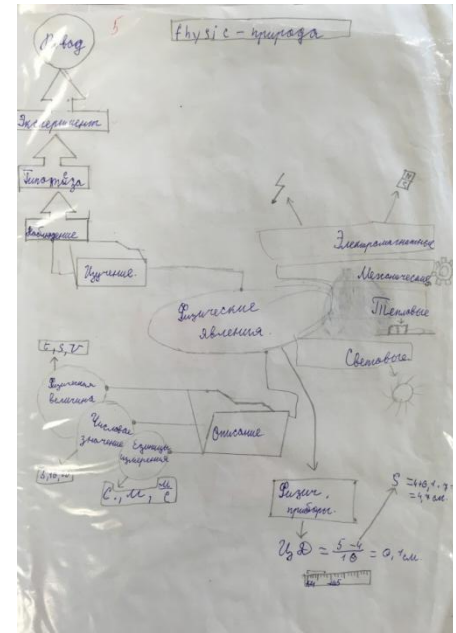 5
physic - природа
Вывод
Эксперимент
Гипотеза
Наблюдение
Изучение
Электромагнитные
Механические
Тепловые
Световые.
Физические
явления.
t, S, V
Физическая
величина
Числовое
значение
Единицы
измерения
Описание
С., м, м/с
Физич.
приборы.
ЦД = 5-4/10 = 0,1 см